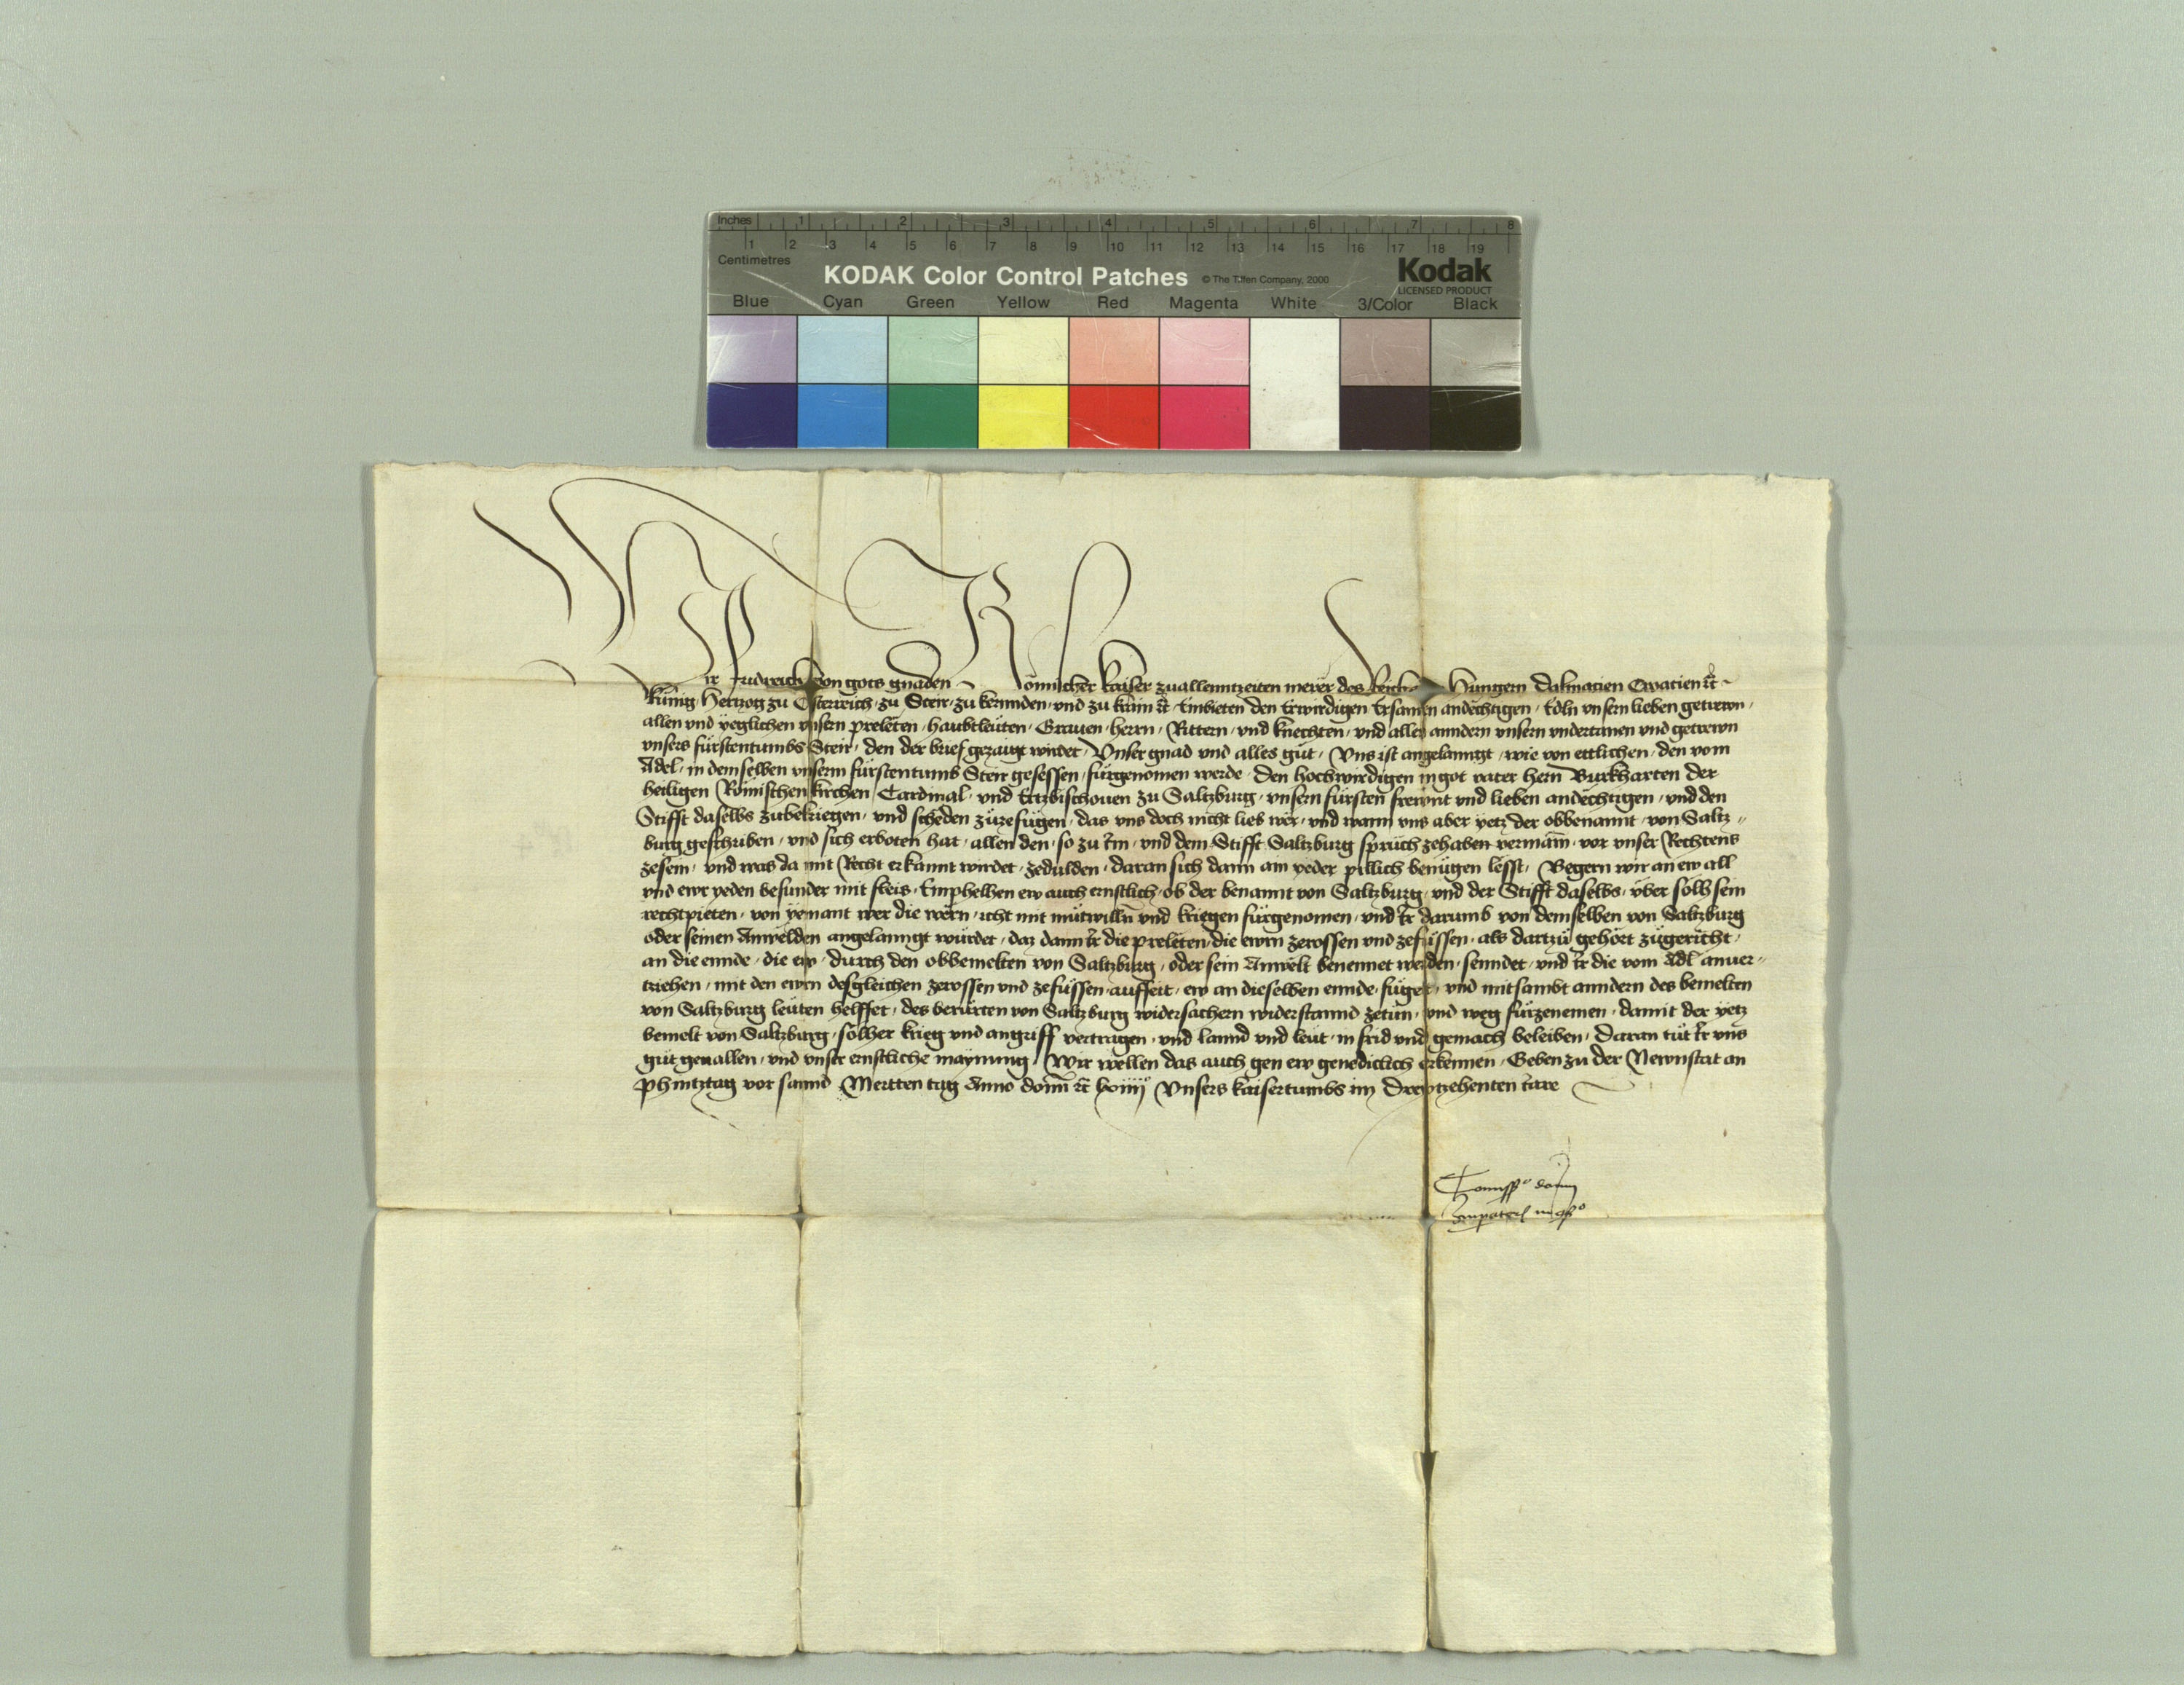 Inches 1 2 3 4 5 6 7 8
1 2 3 4 5 6 7 8 9 10 11 12 13 14 15 16 17 18 19
Centimetres
KODAK Color Control Patches © The Tiffen Company, 2000 Kodak
LICENSED PRODUCT
Blue Cyan Green Yellow Red Magenta White 3/Color Black
Wir Fridreich von gots gnaden Römischer Kaiser zuallenntzeiten merer des Reichs Hungern Dalmacien Croacien rc
Kunig Hertzog zu Österreich zu Steir zu kernnden und zu krain rc Embieten den Erwirdigen Ersamen andechtigen Edeln unsern lieben getrewn
allen und yeglichen unsern preleten haubtleuten Grauen herrn Rittern und knechten und allen anndern unsern undertanen und getrewn
unsers fürstentumbs Steir den der brief gezaigt wirdet Unser gnad und alles gut Uns ist angelanngt wie von ettlichen den vom
Adel in demselben unserm fürstentumb Steir gesessen fürgenomen werde den hochwirdigen in got vater hern Burkharten der
heiligen Römischen kirchen Cardinal und Ertzbischouen zu Saltzburg unserm fürsten frewnt und lieben andechtigen und den
Stifft daselbs zubekriegen und scheden zuzefügen das uns doch nicht lieb wer und wann uns aber yetz der obbenannt von Saltz-
burg geschriben und sich erboten hat allen den so zu Im und dem Stifft Saltzburg spruch zehaben vermain vor unser Rechtens
zesein und was da mit Recht erkannt wirdet zedulden daran sich dann ain yeder pillich benügen lesst Begern wir an ew all
und ewr yeden besunder mit fleis Emphelhen ew auch ernstlich ob der benannt von Saltzburg und der Stifft daselbs über solh sein
rechtpieten von yemant wer die wern icht mit mutwilln und kriegen fürgenomen und Ir darumb von demselben von Saltzburg
oder seinen Anwelden angelanngt würdet daz dann Ir die preleten die ewrn zerossen und zefüssen als dartzu gehört zugericht
an die ennde die ew durch den obbemelten von Saltzburg oder sein Anwelt benennet werden senndet und Ir die vom Adl anuer-
tziehen mit den ewrn desgleichen zerossen und zefüssen auffeit ew an dieselben ennde füget und mitsambt anndern des bemelten
von Saltzburg leuten helffet des berürten von Saltzburg widersachern widerstannd zetun und weg fürzenemen damit der yetz
bemelt von Saltzburg solher krieg und angriff vertragen und lannd und leut in frid und gemach beleiben Daran tut Ir uns
gut geuallen und unser ernstliche maynung Wir wellen das auch gen ew genediclich erkennen Geben zu der Newnstat an
Phintztag vor sannd Mertten tag Anno domi rc lxiiii Unsers kaisertumbs im Drewtzehenten Jare
Commissio domini
Imperatoris in consilio